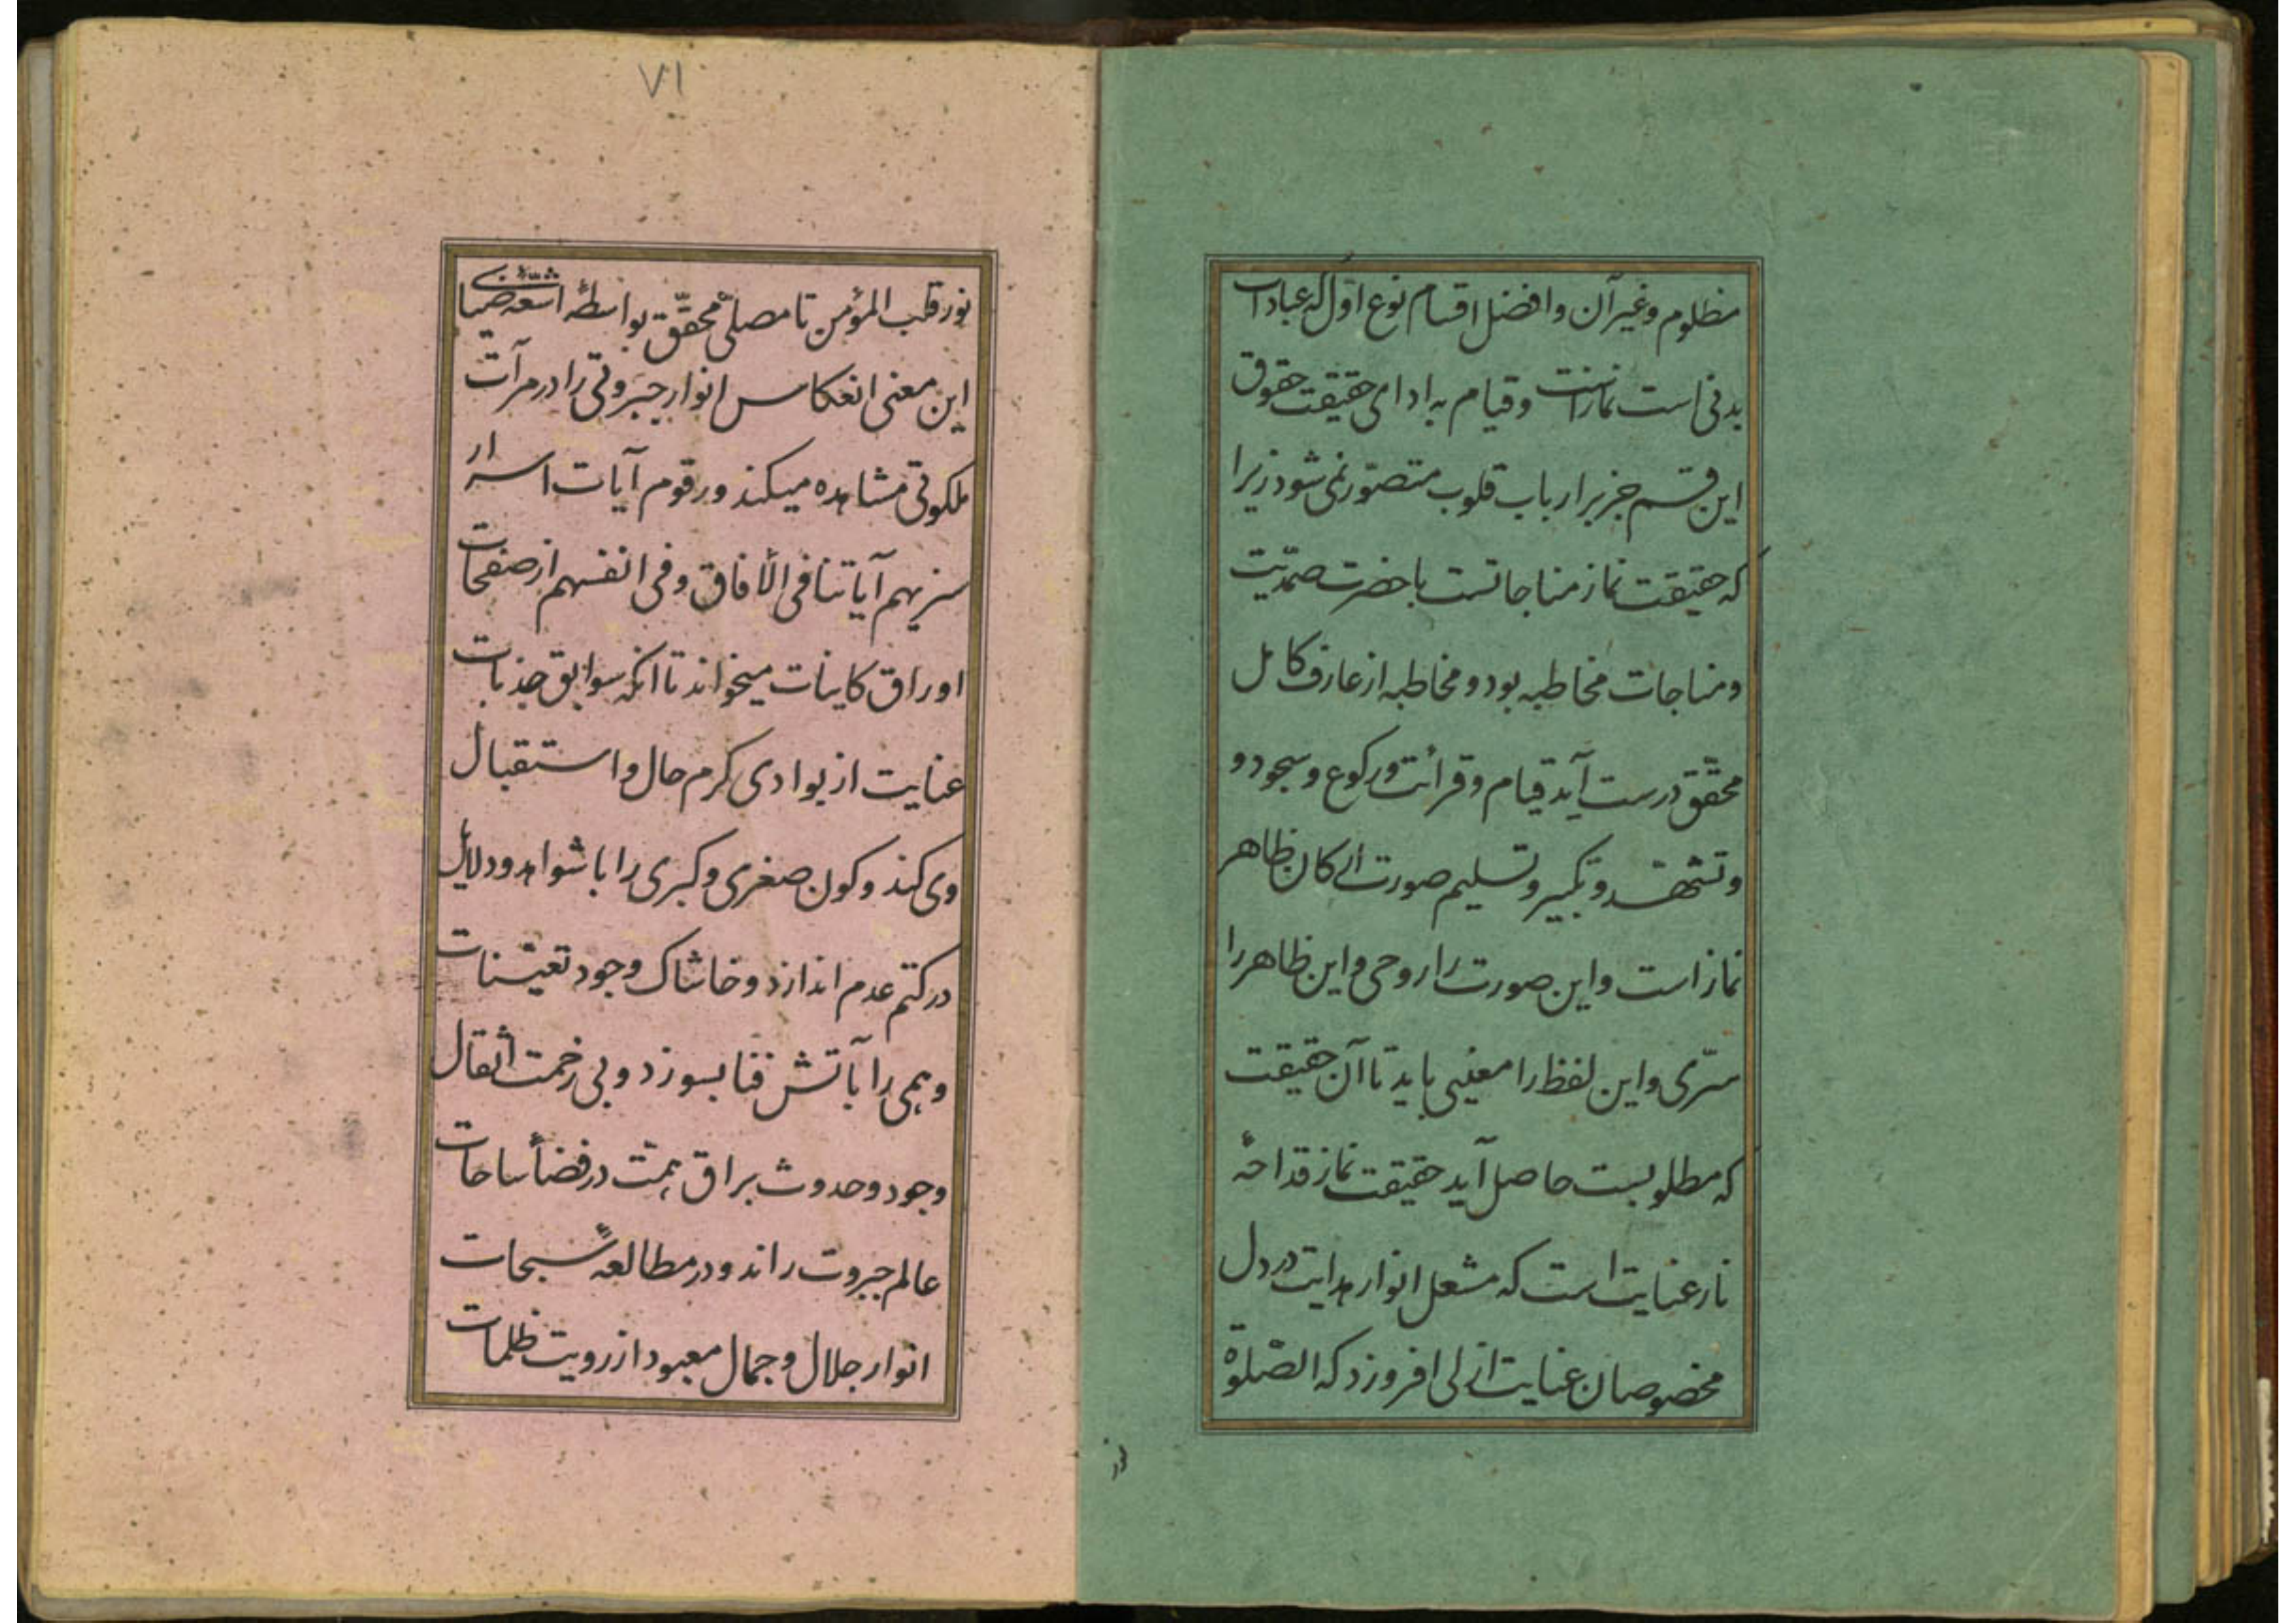 مظلوم و غیر آن و افضل اقسام نوع اوّل که عبادات
بدنی است نمازاست و قیام به ادای حقیقت حقوق
این قسم جز بر ارباب قلوب متصوّر نمی شود زیرا
که حقیقت نماز مناجاتست با حضرت صمدّیت
و مناجات مخاطبه بود و مخاطبه از عارف کامل
محقّق درست آید قیام و قرائت و رکوع و سجود و
و تشهّد و تکبیر و تسلیم صورت ارکان ظاهر
نماز است و این صورت را روحی و این ظاهر را
سرّی و این لفظ را معنیی باید تا آن حقیقت
که مطلوبست حاصل آید حقیقت نماز قداحهٔ
نار عنایت است که مشعل انوار هدایت در دل
مخصوصان عنایت ازلی افروزد که الصّلوة
نور
۷۱
نور قلب المؤمن تا مصلّی محقّق بواسطهٔ اشعّهٔ ضیای
این معنی انعکاس انوار جبروتی را در مرآت
ملکوتی مشاهده میکند و رقوم آیات اسرار
سنریهم آیاتنا فی الأفاق و فی انفسهم از صفحات
اوراق کاینات میخواند تا انکه سوابق جذبات
عنایت از بوادی کرم حال و استقبال
وی کند و کون صغری و کبری را با شواهد و دلایل
در کتم عدم اندازد و خاشاک وجود تعیّنات
وهمی را بآتش فنا بسوزد و بی زحمت اثقال
وجود و حدوث براق همّت در فضأ ساحات
عالم جبروت راند و در مطالعهٔ سبحات
انوار جلال و جمال معبود از رویت ظلمات